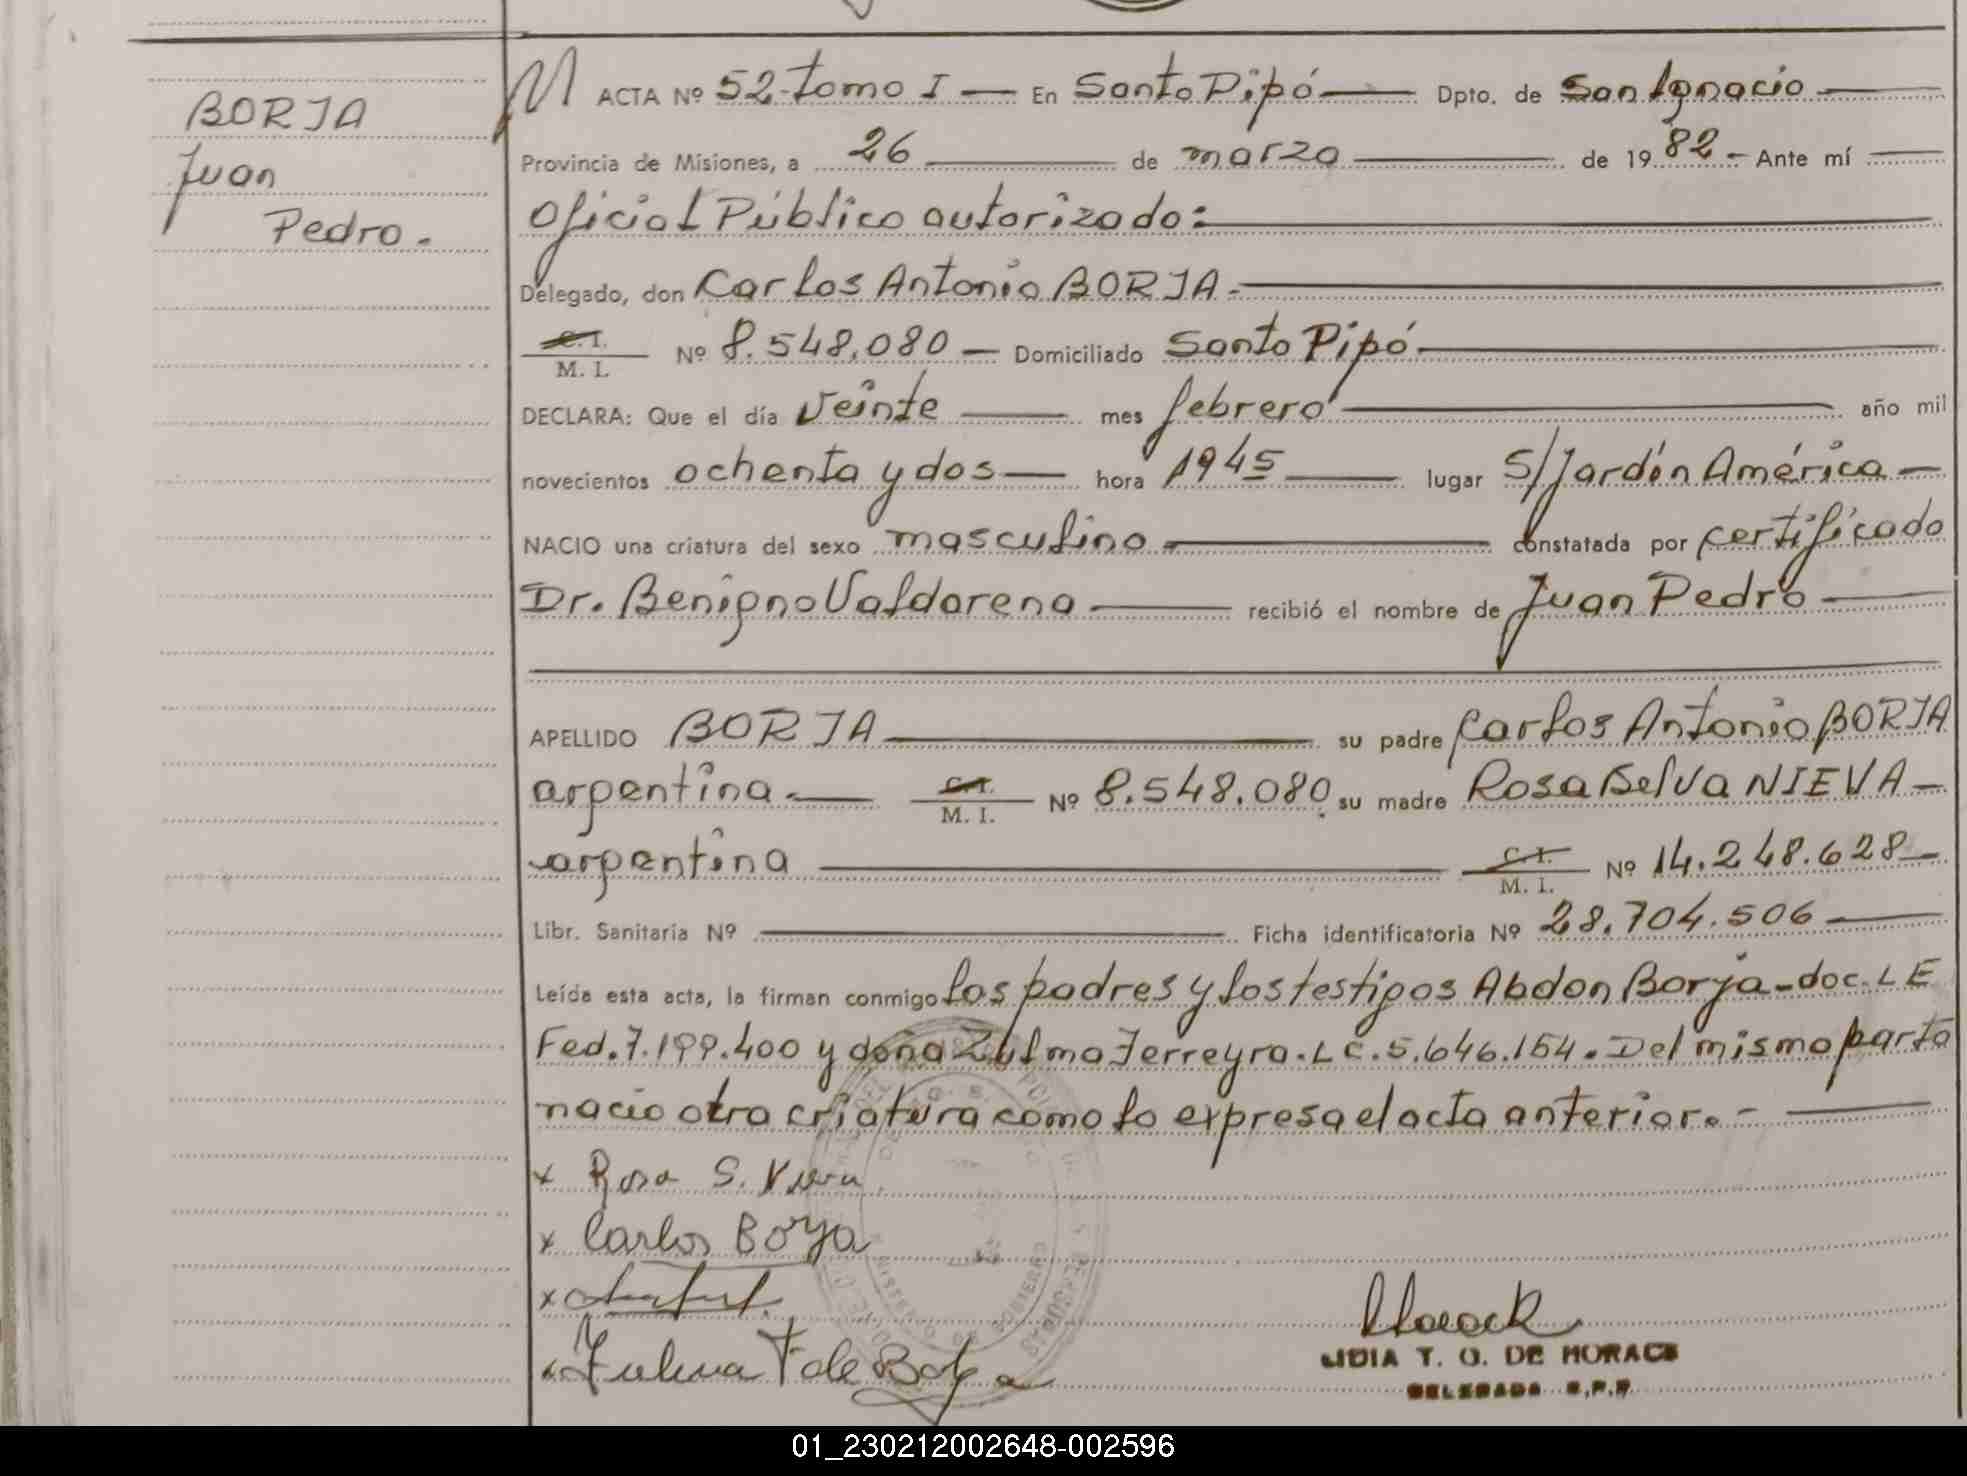 BORJA
Juan
Pedro.
M ACTA Nº 52-Tomo I — En Santo Pipó — Dpto. de San Ignacio —
Provincia de Misiones, a 26 — de marzo — de 19 82 - Ante mí —
Oficial Público autorizado: —
Delegado, don Carlos Antonio BORJA. —
C. I.
M. I. Nº 8.548.080 — Domiciliado Santo Pipó —
DECLARA: Que el día veinte — mes febrero — año mil
novecientos ochenta y dos — hora 1945 — lugar S/Jardín América —
NACIO una criatura del sexo masculino — constatada por certificado
Dr. Benigno Valdorena — recibió el nombre de Juan Pedro —
APELLIDO BORJA — su padre Carlos Antonio BORJA
argentina. — C. I.
M. I. Nº 8.548.080. su madre Rosa Selva NIEVA —
argentina — C. I.
M. I. Nº 14.248.628 —
Libr. Sanitaria Nº — Ficha identificatoria Nº 28.704.506 —
Leída esta acta, la firman conmigo los padres y los testigos Abdon Borja - doc. L E
Fed. 7.199.400 y doña Zulma Ferreyra. L C. 5.646.154. Del mismo parto
nacio otra criatura como lo expresa el acta anterior. - —
x Rosa S. Nieva
x Carlos Borja
x
x Zulma F de Borja
LIDIA T. O. DE HORACK
DELEGADA R.P.P
01_230212002648-002596